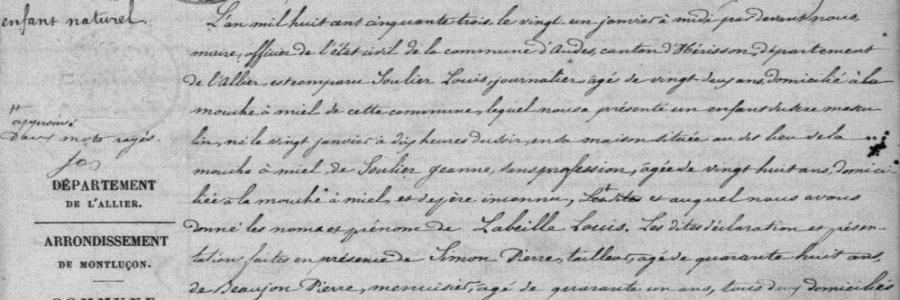 enfant naturel.
L'an mil huit cent cinquante trois, le vingt un janvier à midi par devant nous
maire, officier de l'état civil de la commune d'Audes, canton d'Hérisson, département
de l'Allier, est comparu Soulier Louis, journalier, agé de vingt deux ans, domicilié à la
mouche à miel de cette commune, lequel nous a présenté un enfant du sexe mascu
lin, né le vingt janvier à dix heures du soir, en sa maison située au dit lieu de la
mouche à miel, de Soulier Jeanne, sans profession, agée de vingt huit ans, domici-
liée à la mouche à miel, et de père inconnu, et auquel nous avons
donné les noms et prénom de Labeille Louis. Les dites déclaration et présen-
tation faites en présence de Simon Pierre, tailleur, agé de quarante huit ans,
de Beaujon Pierre, menuisier, agé de quarante un ans, tous deux domiciliés
approuvé
Deux mots rayés
DÉPARTEMENT
DE L'ALLIER.
ARRONDISSEMENT
DE MONTLUÇON.
COMMUNE